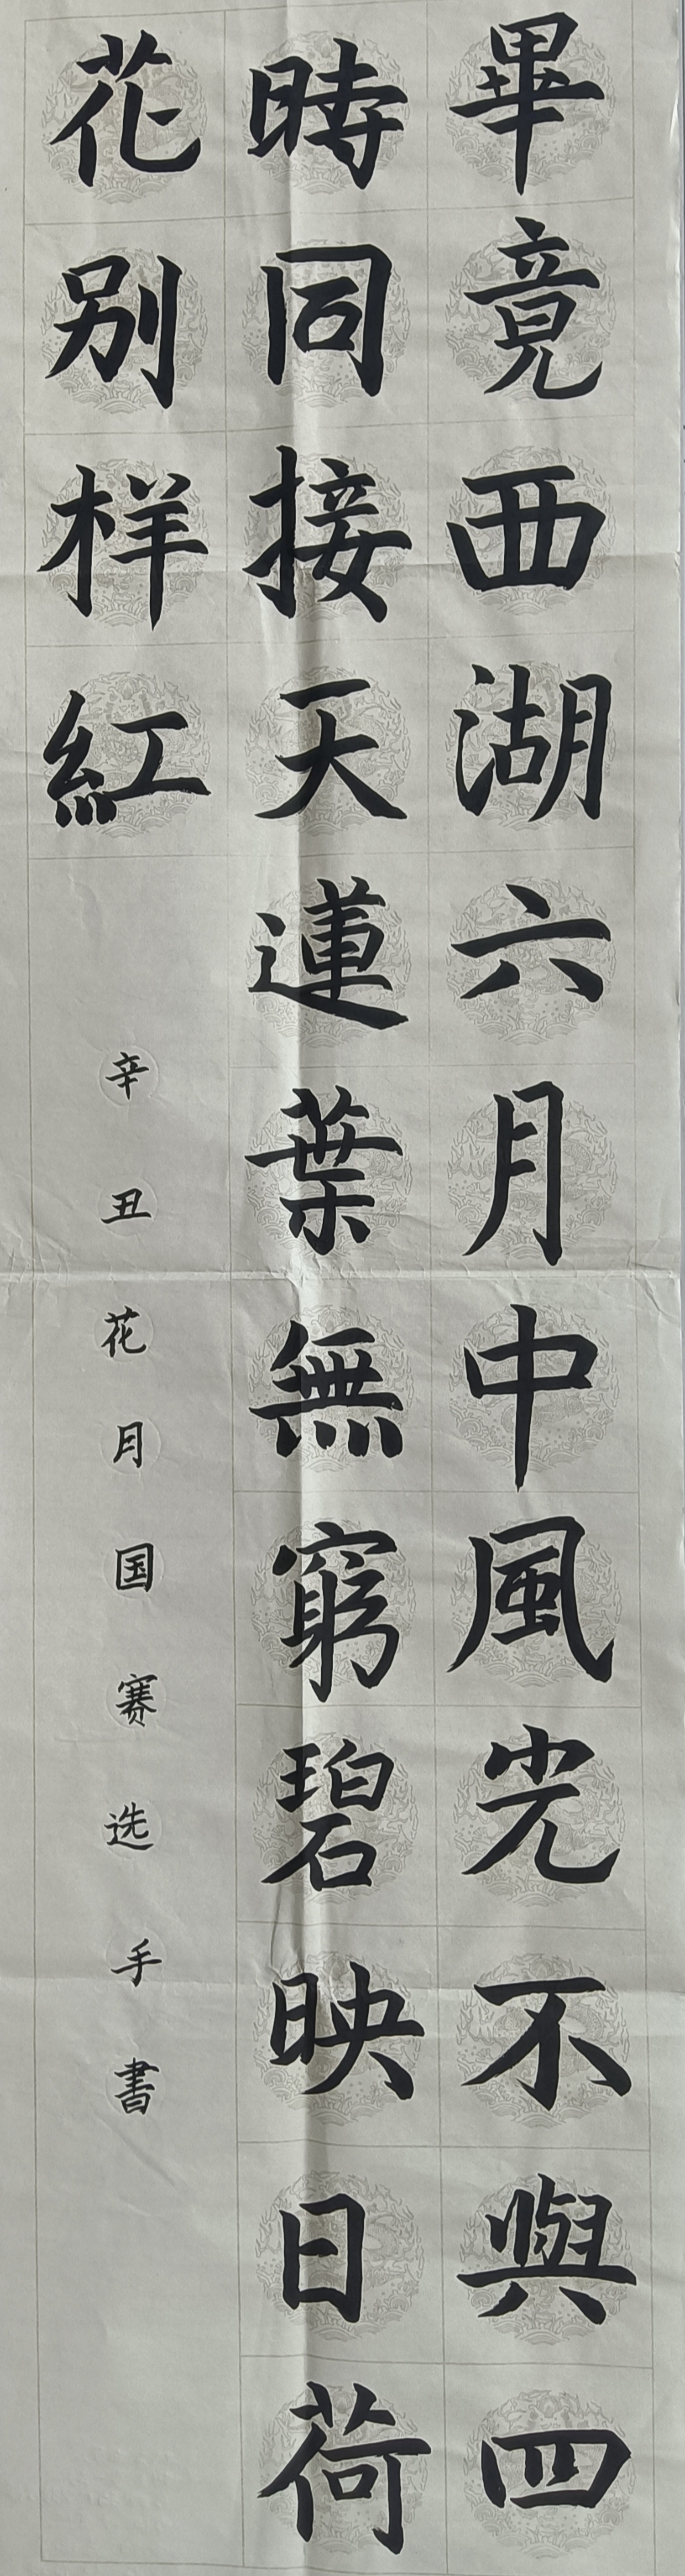 畢竟西湖六月中風光不與四
時同接天蓮葉無窮碧映日荷
花别样紅
辛丑花月国赛选手書